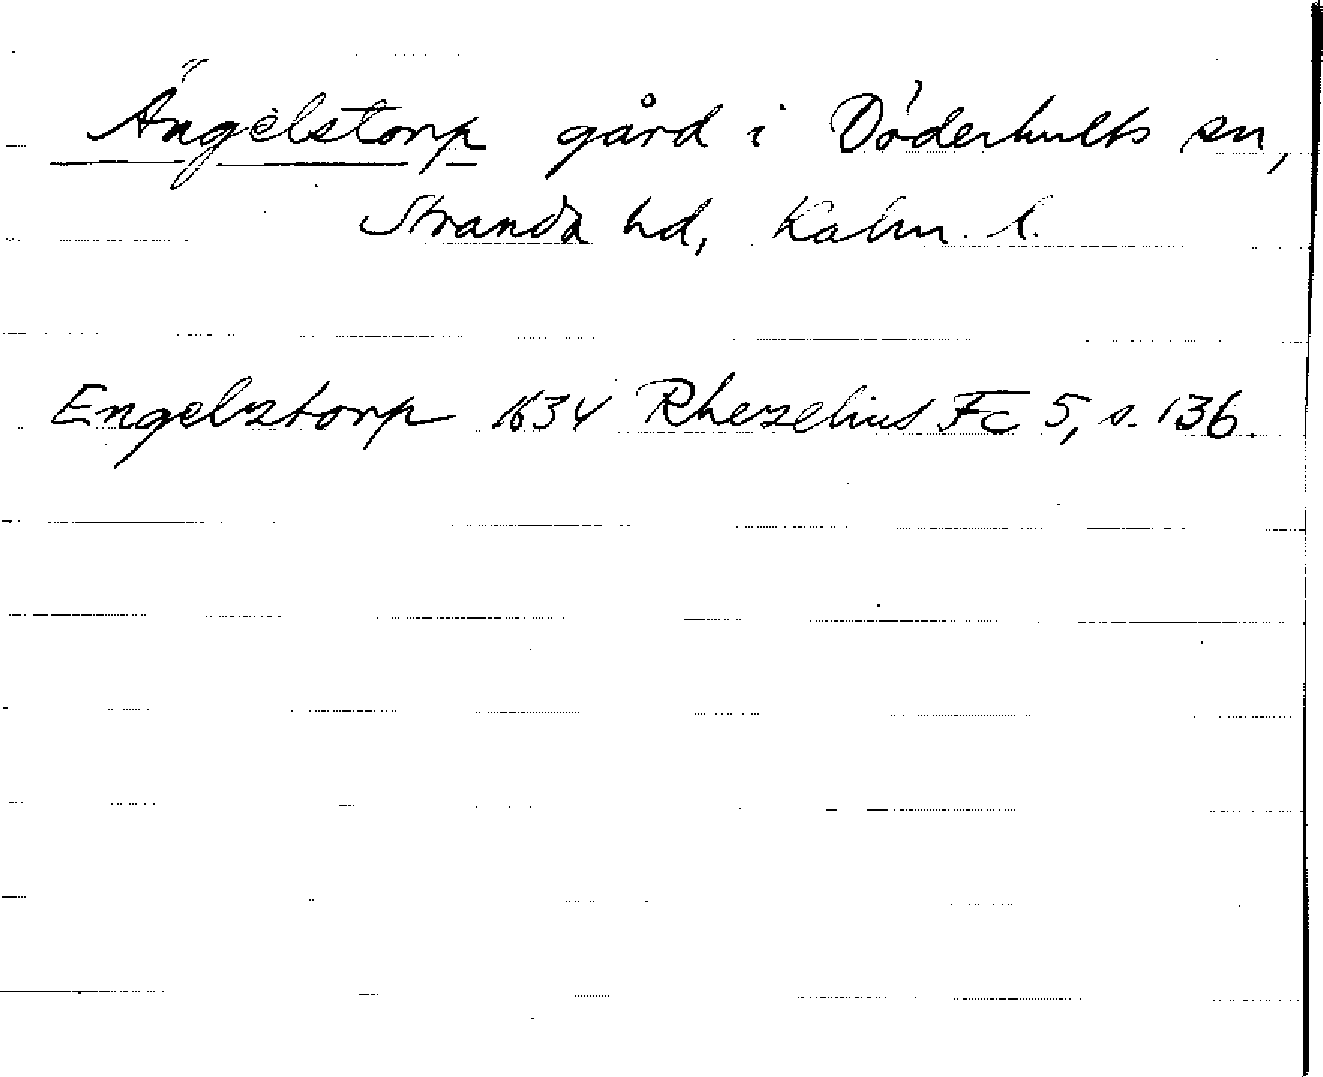 Ängelstorp gård i Döderhults sn,
Stranda hd, Kalm. l.
Engelstorp 1634 Rhezelius Fc 5, s. 136.